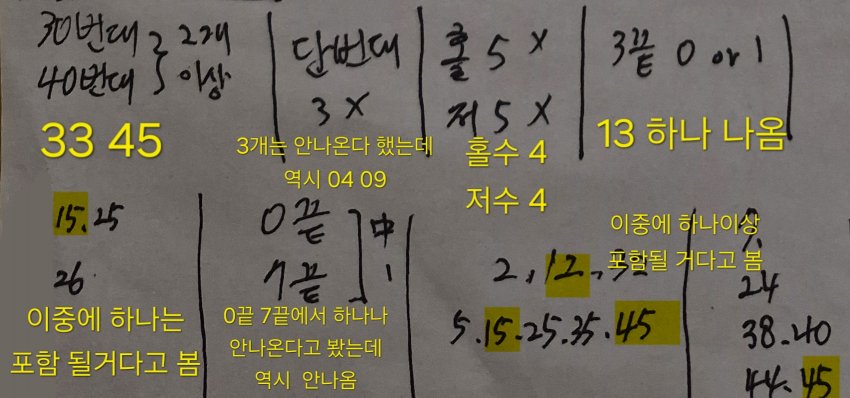 30번대 } 2개
40번대 이상
33 45
단번대
3 X
3개는 안나온다 했는데
역시 04 09
홀 5 X
저 5 X
홀수 4
저수 4
3끝 0 or 1
13 하나 나옴
15.25
26
이중에 하나는
포함 될거다고 봄
0끝
7끝
中
1
0끝 7끝에서 하나나
안나온다고 봤는데
역시 안나옴
2, 12, 32
5.15.25.35.45
이중에 하나이상
포함될 거다고 봄
24
38.40
44.45